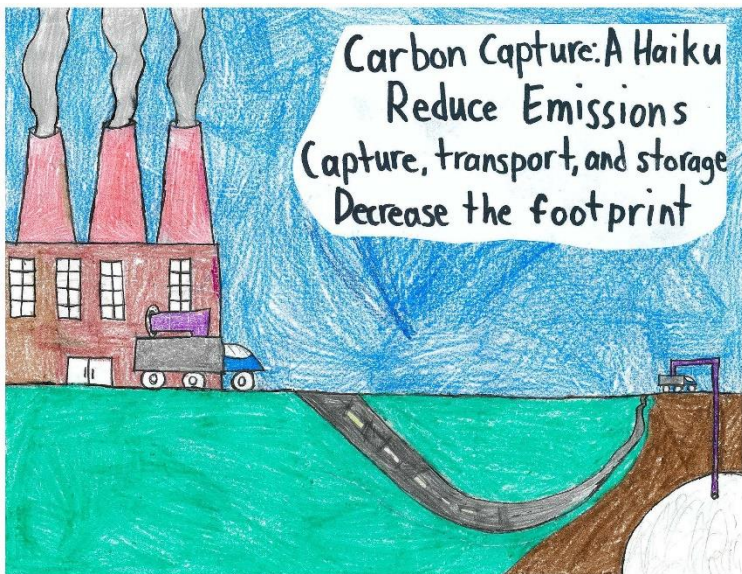 Carbon Capture: A Haiku
Reduce Emissions
Capture, transport, and storage
Decrease the footprint